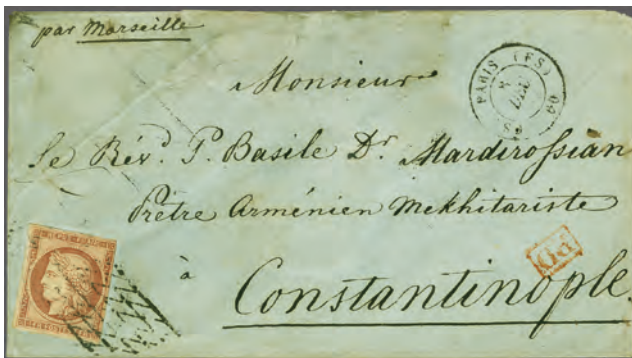 par Marseille
PARIS (FS)
60
Monsieur
Le Rév.d P. Basile Dr. Mardirossian
Prêtre Arménien Mekhitariste
PD
à
Constantinople.
REPUB. FRANC.